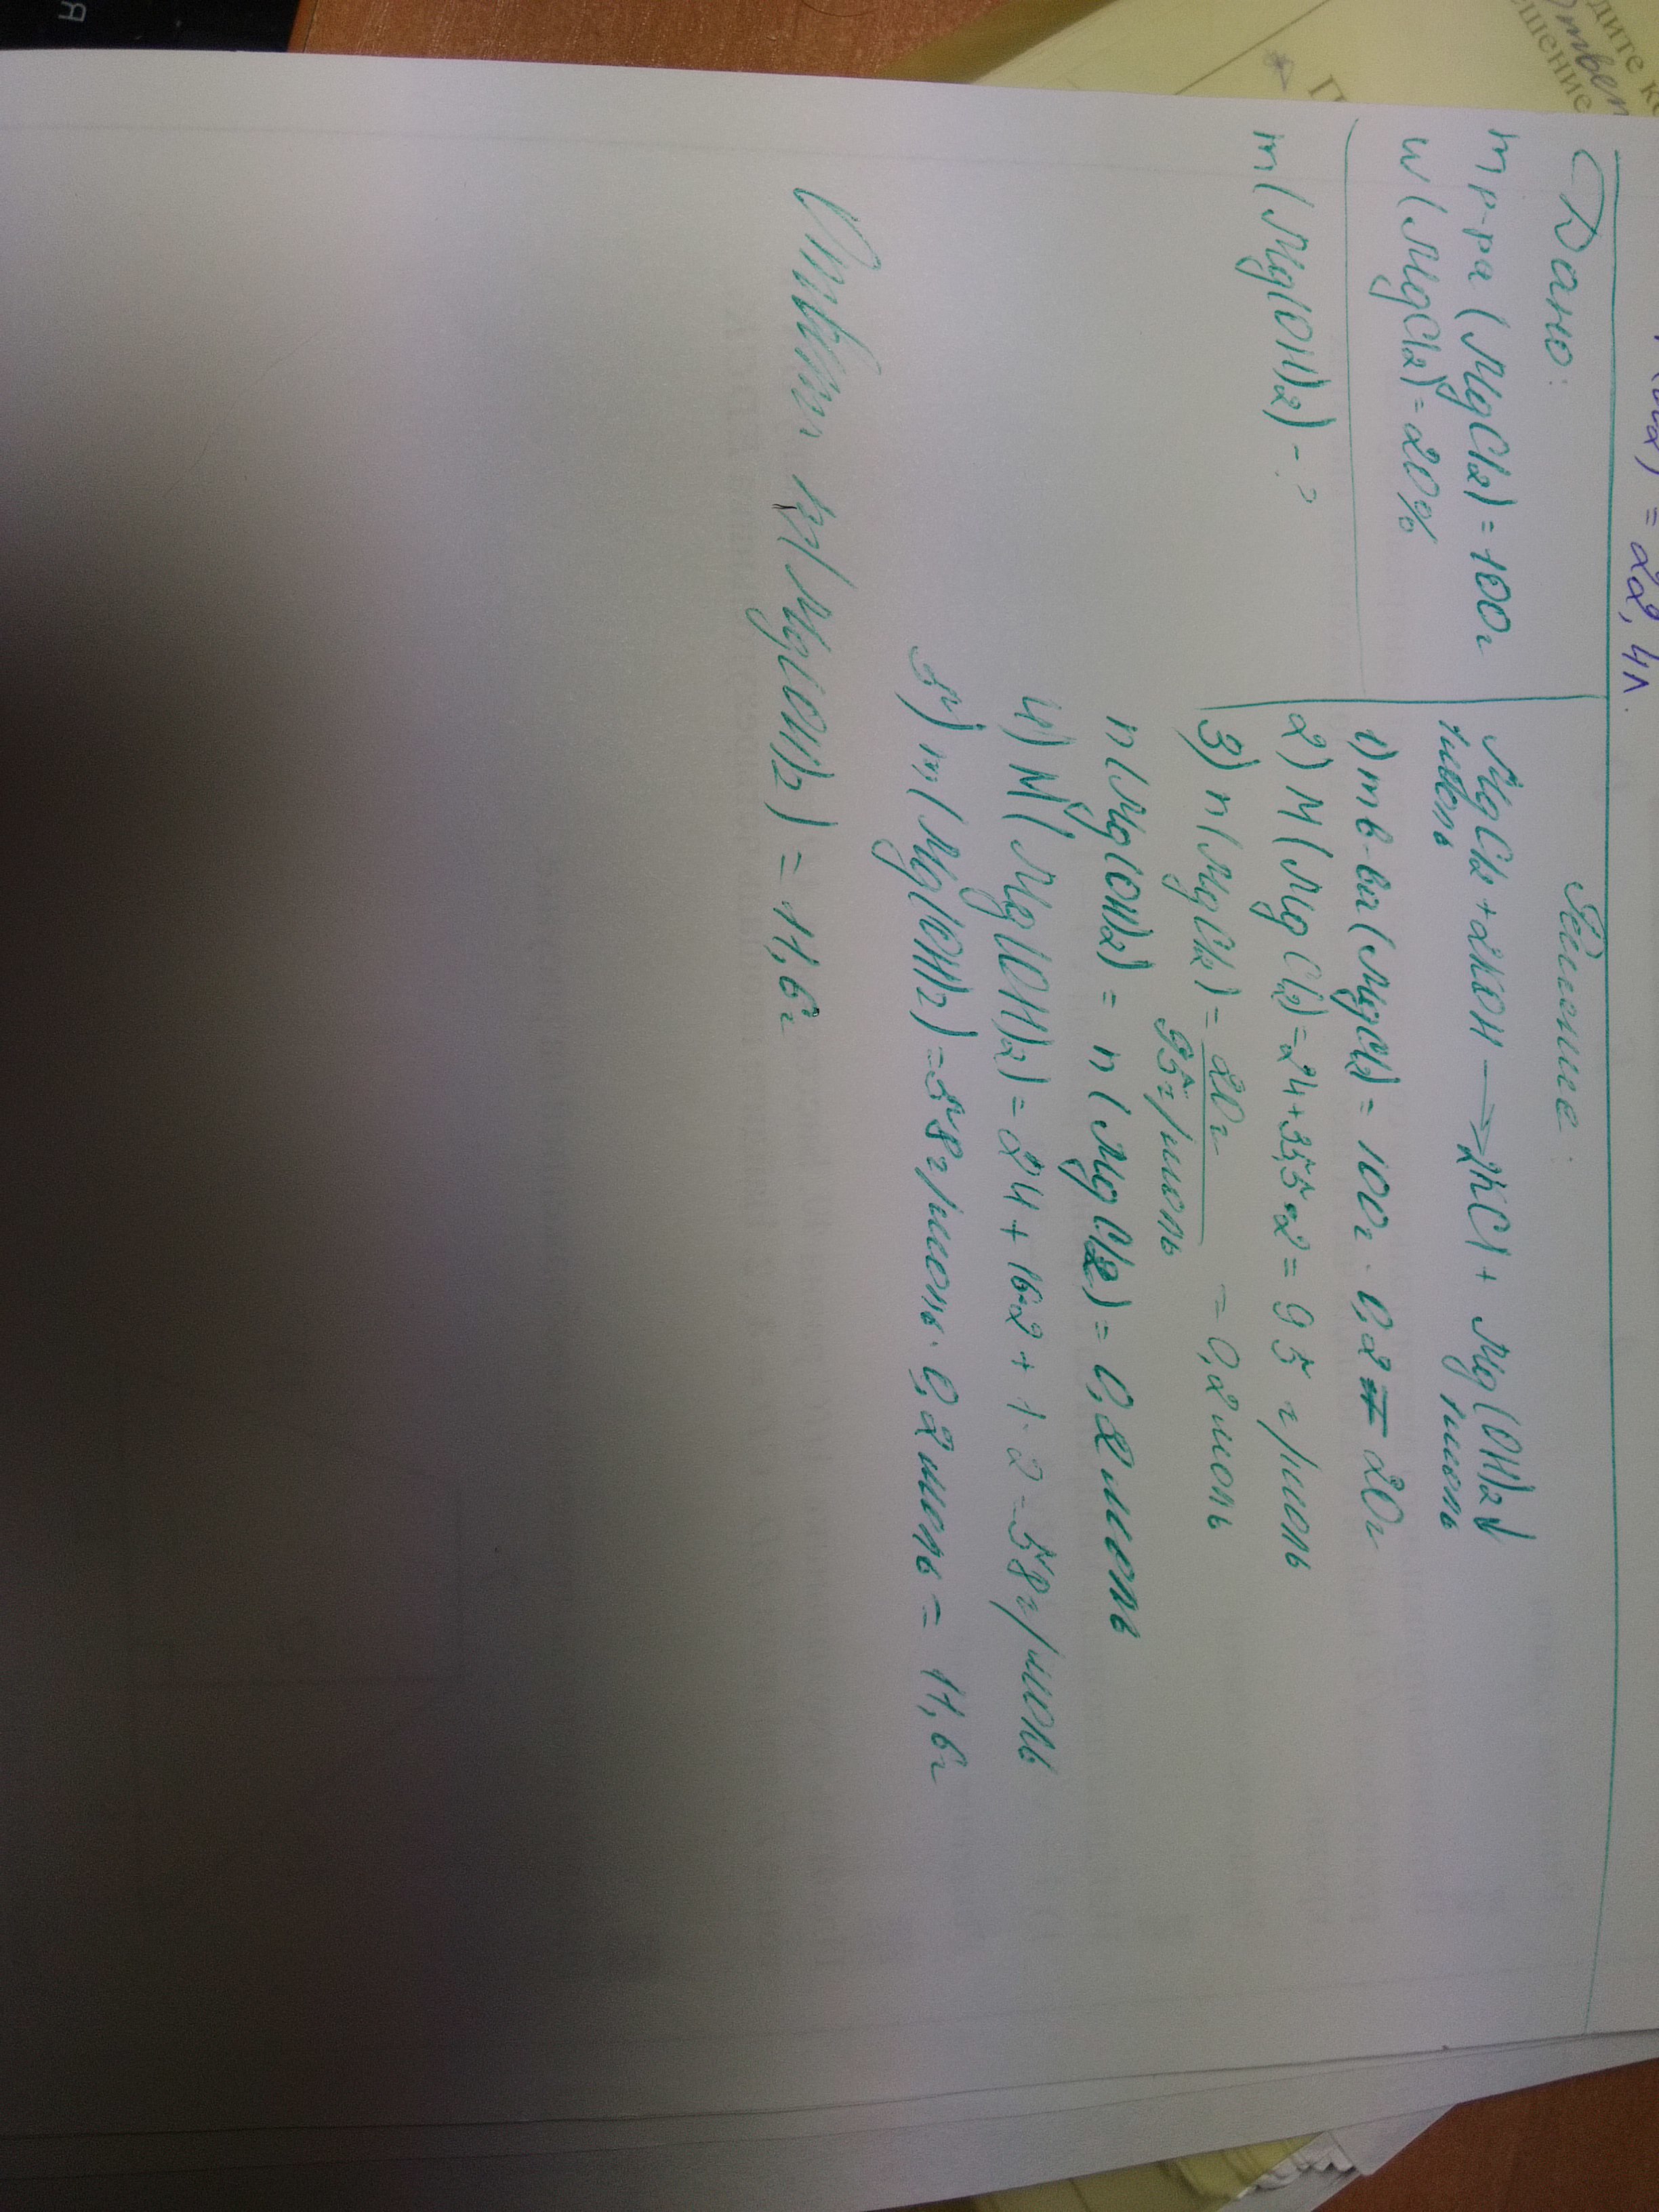 = 22,4л.
Дано:
m р-ра (MgCl2) = 100г
w (MgCl2) = 20%
m (Mg(OH)2) - ?
Решение:
MgCl2 + 2KOH → 2KCl + Mg(OH)2↓
1моль 1моль
1) m в-ва (MgCl2) = 100г · 0,2 = 20г
2) M (MgCl2) = 24 + 35,5·2 = 95 г/моль
3) n (MgCl2) = 20г / 95г/моль = 0,2моль
n (Mg(OH)2) = n (MgCl2) = 0,2моль
4) M (Mg(OH)2) = 24 + 16·2 + 1·2 = 58г/моль
5) m (Mg(OH)2) = 58г/моль · 0,2моль = 11,6г
Ответ: m(Mg(OH)2) = 11,6г
дите
Ответ
шение
Я